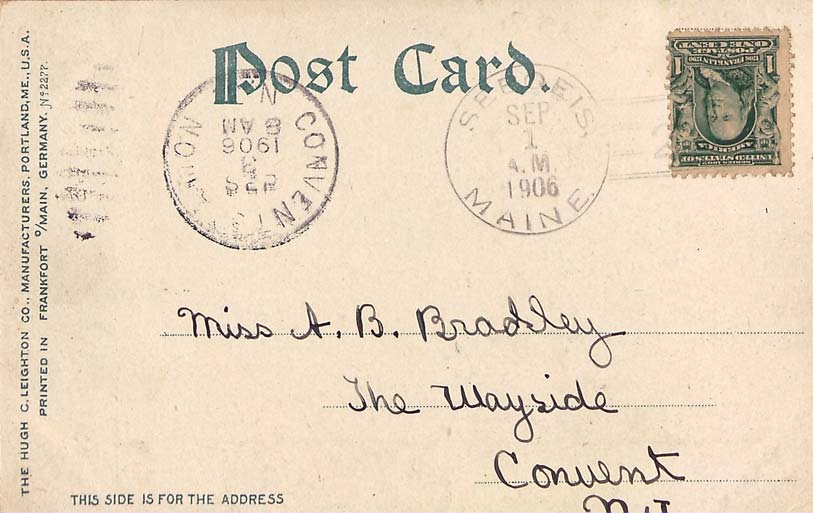 Post Card.
THE HUGH C. LEIGHTON CO., MANUFACTURERS, PORTLAND, ME., U.S.A.
PRINTED IN FRANKFORT O/MAIN, GERMANY. No 2277.
CONVENT STATION
N.J.
SEP
3
8 AM
1906
MAINE.
SEP
1
A.M.
1906
SERIES 1902
UNITED STATES OF AMERICA
FRANKLIN
POSTAGE
ONE CENT
1 1
Miss A. B. Bradley
The Wayside
Convent
N.J.
THIS SIDE IS FOR THE ADDRESS